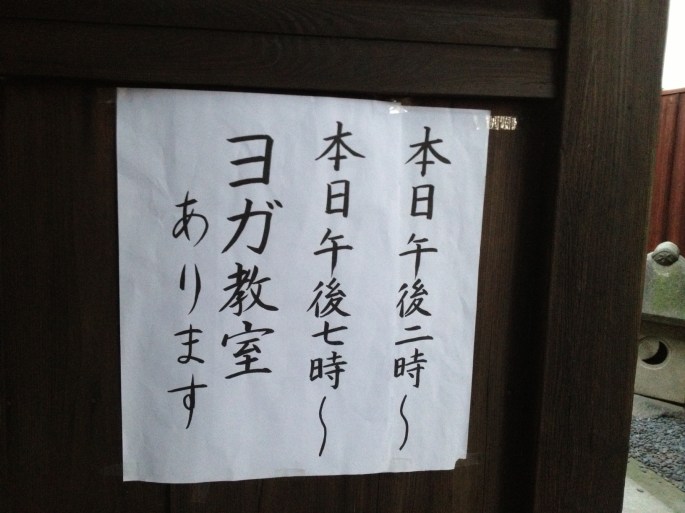 本日午後二時〜
本日午後七時〜
ヨガ教室
あります